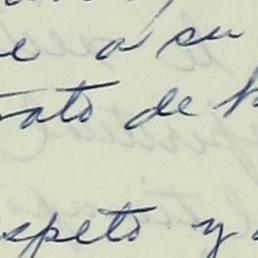 e a su
rato de
speto y